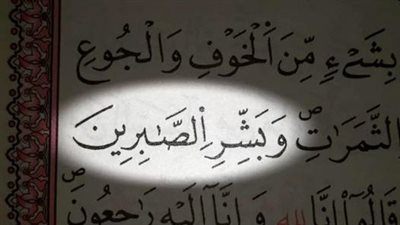 بِشَىْءٍ مِّنَ ٱلْخَوْفِ وَالْجُوعِ
الثَّمَرَاتِ ۗ وَبَشِّرِ الصَّابِرِينَ
قَالُوٓا۟ إِنَّا لِلَّهِ وَإِنَّآ إِلَيْهِ رَاجِعُونَ